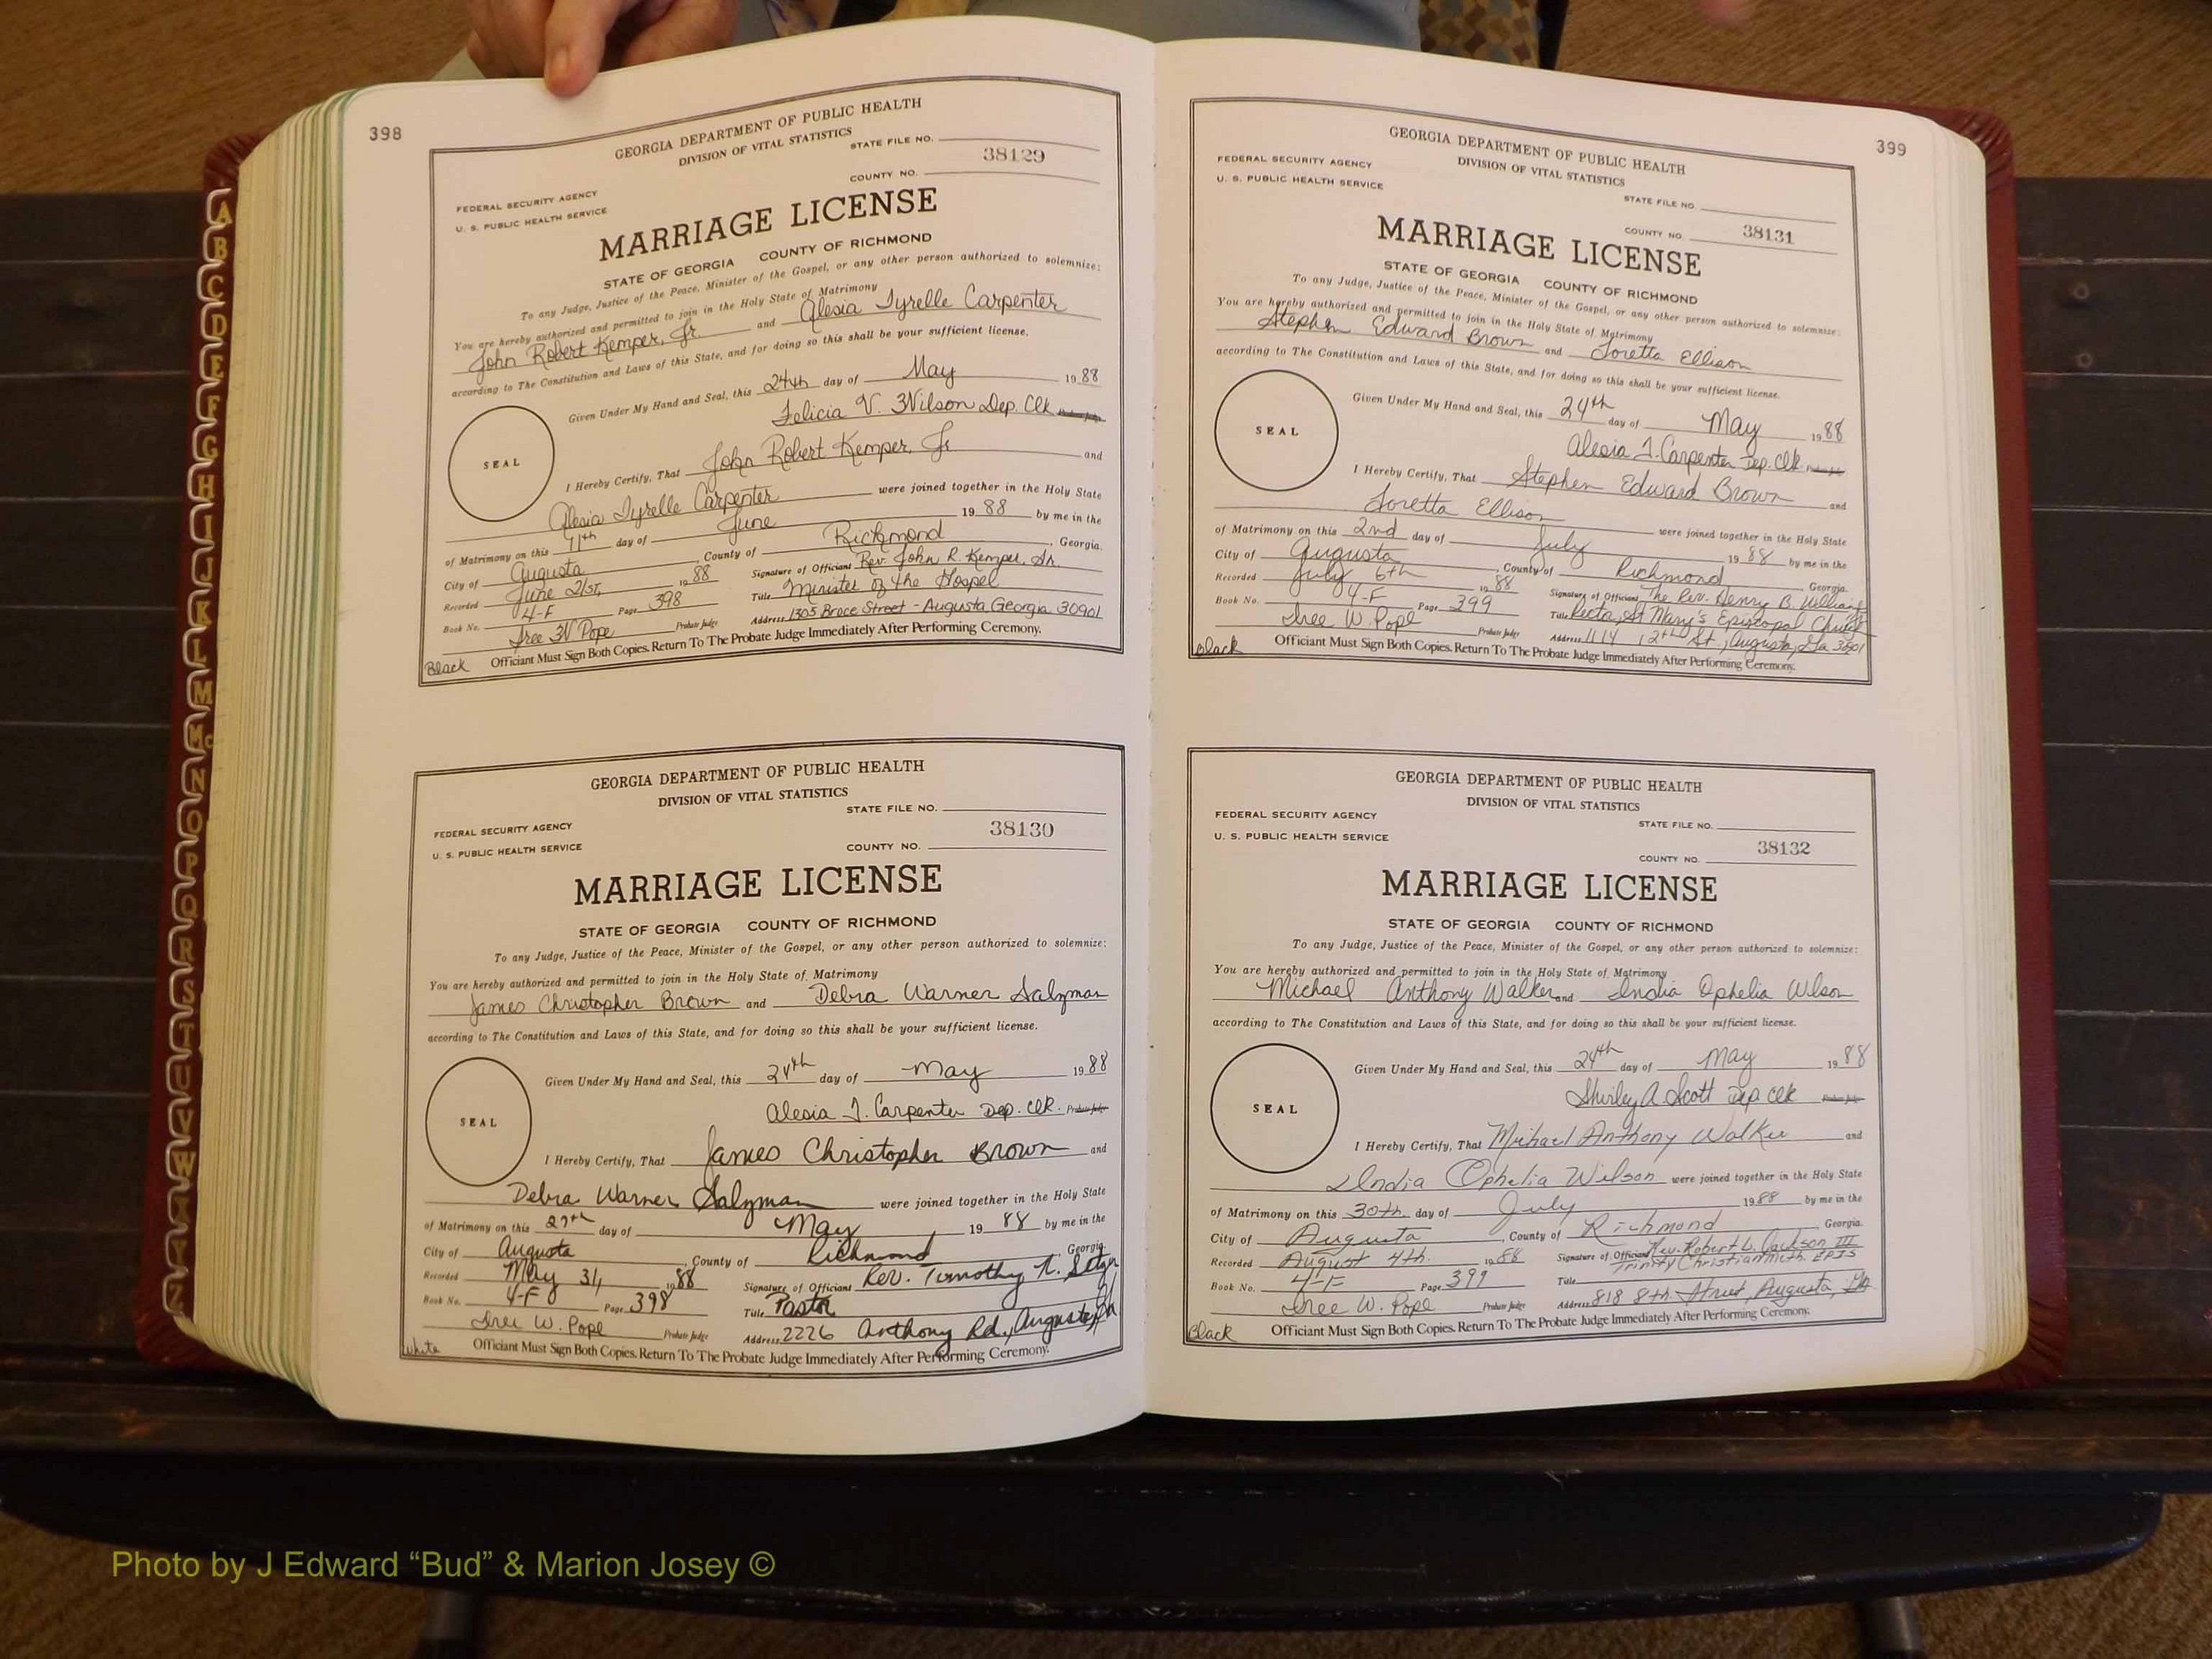 398
GEORGIA DEPARTMENT OF PUBLIC HEALTH
DIVISION OF VITAL STATISTICS
STATE FILE NO.
38129
COUNTY NO.
FEDERAL SECURITY AGENCY
U. S. PUBLIC HEALTH SERVICE
MARRIAGE LICENSE
STATE OF GEORGIA COUNTY OF RICHMOND
To any Judge, Justice of the Peace, Minister of the Gospel, or any other person authorized to solemnize:
You are hereby authorized and permitted to join in the Holy State of Matrimony
John Robert Kemper, Jr. and Alesia Tyrelle Carpenter
according to The Constitution and Laws of this State, and for doing so this shall be your sufficient license.
Given Under My Hand and Seal, this 24th day of May 1988
Felicia V. Wilson Dep. Clk Probate Judge
SEAL
I Hereby Certify, That John Robert Kemper, Jr and
Alesia Tyrelle Carpenter were joined together in the Holy State
of Matrimony on this 11th day of June 19 88 by me in the
City of Augusta, County of Richmond, Georgia.
Recorded June 21st, 1988 Signature of Officiant Rev. John R. Kemper, Sr.
Book No. 4-F Page 398 Title Minister of the Gospel
Iree W Pope Probate Judge Address 1305 Brace Street - Augusta, Georgia 30901
Black Officiant Must Sign Both Copies. Return To The Probate Judge Immediately After Performing Ceremony.
GEORGIA DEPARTMENT OF PUBLIC HEALTH
DIVISION OF VITAL STATISTICS
STATE FILE NO.
FEDERAL SECURITY AGENCY
38130
U. S. PUBLIC HEALTH SERVICE
COUNTY NO.
MARRIAGE LICENSE
STATE OF GEORGIA COUNTY OF RICHMOND
To any Judge, Justice of the Peace, Minister of the Gospel, or any other person authorized to solemnize:
You are hereby authorized and permitted to join in the Holy State of Matrimony
James Christopher Brown and Debra Warner Salzman
according to The Constitution and Laws of this State, and for doing so this shall be your sufficient license.
Given Under My Hand and Seal, this 24th day of May 1988
Alesia T. Carpenter Dep. Clk. Probate Judge
SEAL
I Hereby Certify, That James Christopher Brown and
Debra Warner Salzman were joined together in the Holy State
of Matrimony on this 27th day of May 19 88 by me in the
City of Augusta, County of Richmond, Georgia.
Recorded May 31, 1988 Signature of Officiant Rev. Timothy
Book No. 4-F Page 398 Title Pastor
Iree W. Pope Probate Judge Address 2226 Anthony Rd., Augusta, Ga
White Officiant Must Sign Both Copies. Return To The Probate Judge Immediately After Performing Ceremony.
399
GEORGIA DEPARTMENT OF PUBLIC HEALTH
DIVISION OF VITAL STATISTICS
FEDERAL SECURITY AGENCY
U. S. PUBLIC HEALTH SERVICE
STATE FILE NO.
COUNTY NO. 38131
MARRIAGE LICENSE
STATE OF GEORGIA COUNTY OF RICHMOND
To any Judge, Justice of the Peace, Minister of the Gospel, or any other person authorized to solemnize:
You are hereby authorized and permitted to join in the Holy State of Matrimony
Stephen Edward Brown and Loretta Ellison
according to The Constitution and Laws of this State, and for doing so this shall be your sufficient license.
Given Under My Hand and Seal, this 24th day of May 1988
Alesia T. Carpenter Dep. Clk. Probate Judge
SEAL
I Hereby Certify, That Stephen Edward Brown and
Loretta Ellison were joined together in the Holy State
of Matrimony on this 2nd day of July 19 88 by me in the
City of Augusta, County of Richmond, Georgia.
Recorded July 6th 1988 Signature of Officiant The Rev. Henry B. Williams
Book No. 4-F Page 399 Title Rector, St Mary's Episcopal Church
Iree W. Pope Probate Judge Address 1114 12th St., Augusta, Ga 30901
Black Officiant Must Sign Both Copies. Return To The Probate Judge Immediately After Performing Ceremony.
GEORGIA DEPARTMENT OF PUBLIC HEALTH
DIVISION OF VITAL STATISTICS
FEDERAL SECURITY AGENCY
STATE FILE NO.
U. S. PUBLIC HEALTH SERVICE
38132
COUNTY NO.
MARRIAGE LICENSE
STATE OF GEORGIA COUNTY OF RICHMOND
To any Judge, Justice of the Peace, Minister of the Gospel, or any other person authorized to solemnize:
You are hereby authorized and permitted to join in the Holy State of Matrimony
Michael Anthony Walker and India Ophelia Wilson
according to The Constitution and Laws of this State, and for doing so this shall be your sufficient license.
Given Under My Hand and Seal, this 24th day of May 1988
Shirley A. Scott Dep Clk Probate Judge
SEAL
I Hereby Certify, That Michael Anthony Walker and
India Ophelia Wilson were joined together in the Holy State
of Matrimony on this 30th day of July 1988 by me in the
City of Augusta, County of Richmond Georgia.
Recorded August 4th. 1988 Signature of Officiant Rev. Robert L. Jackson III
Trinity Christian Meth. EPIS
Book No. 4-F Page 399 Title
Iree W. Pope Probate Judge Address 818 8th. Street, Augusta, GA
Black Officiant Must Sign Both Copies. Return To The Probate Judge Immediately After Performing Ceremony.
A
B
C
D
E
F
G
H
I
J
K
L
M
Mc
N
O
P
Q
R
S
T
U
V
W
X
Y
Z
Photo by J Edward “Bud” & Marion Josey ©